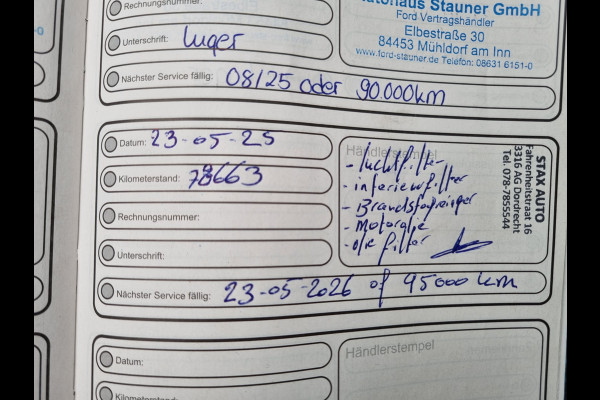 Rechnungsnummer:
Autohaus Stauner GmbH
Ford Vertragshändler
Elbestraße 30
84453 Mühldorf am Inn
www.ford-stauner.de Telefon: 08631 6151-0
Unterschrift: Luger
Nächster Service fällig: 08/25 oder 90.000km
Datum: 23-05-25
Kilometerstand: 663
Rechnungsnummer:
Unterschrift:
Händlerstempel
- luchtfilter
- interieurfilter
- Brandstofreiniger
- Motorolie
- olie filter
STAX AUTO
Fahrenheitstraat 16
3316 AG Dordrecht
Tel. 078-7855544
Nächster Service fällig: 23-05-2026 of 95000 km
Datum:
Händlerstempel
Kilometerstand: